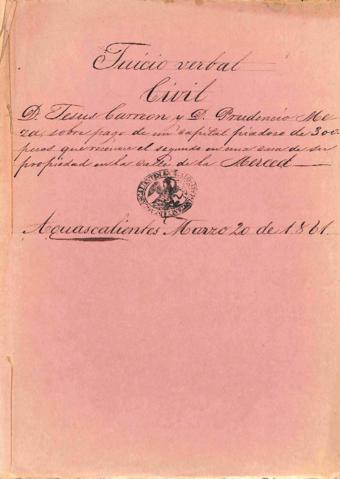 Juicio verbal
Civil
D. Jesus Carreon y D. Prudencio Me-
za, sobre pago de un capital piadoso de 300
pesos que reconoce el segundo en una casa de su
propiedad en la calle de la Merced
Aguascalientes Marzo 20 de 1861.